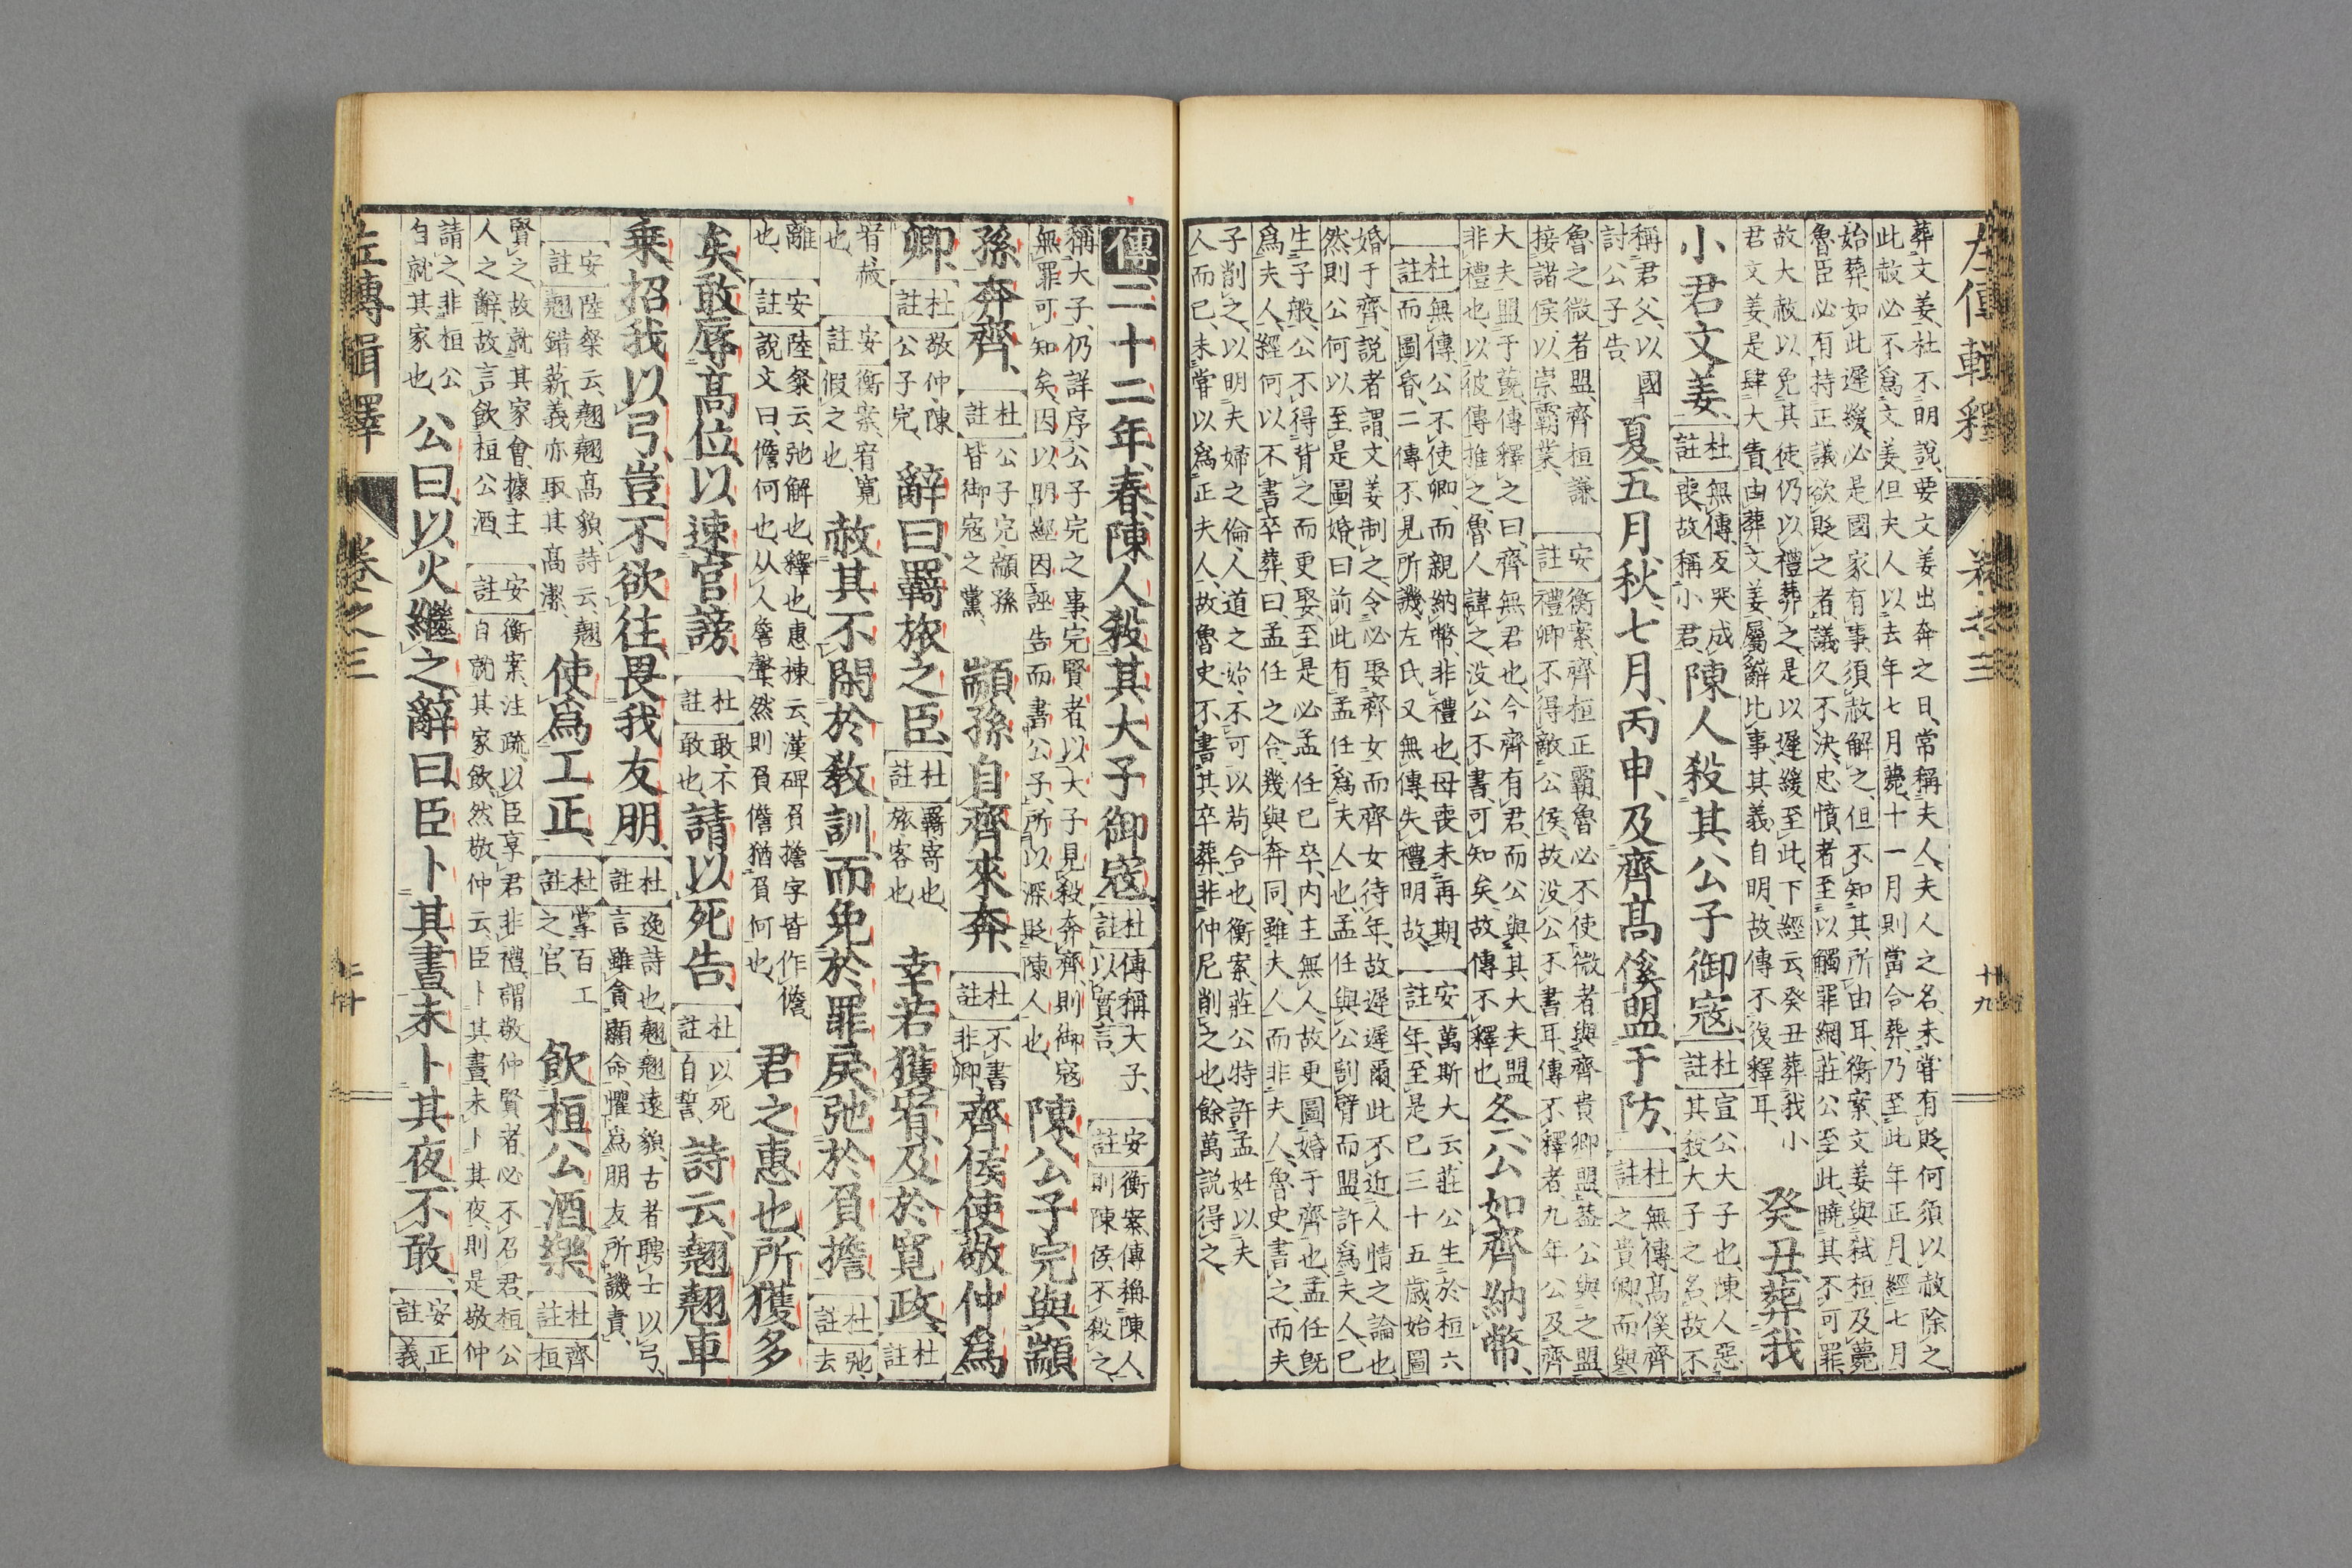 左傳輯釋　卷之三　十九
葬文姜、杜不明說、要文姜出奔之日、常稱夫人、夫人之名、未嘗有貶、何須以赦除之
此赦必不爲文姜、但夫人以去年七月薨、十一月則當合葬、乃至此年正月、經七月
始葬、如此遲緩、必是國家有事、須赦解之、但不知其所由耳、衡案、文姜與弒桓、及薨
魯臣必有持正議欲貶之者、議久不決、忠憤者至以觸罪網、莊公至此、曉其不可罪、
故大赦以免其徒、仍以禮葬之、是以遲緩至此、下經云、癸丑葬我小
君文姜、是肆大眚、由葬文姜、屬辭比事、其義自明、故傳不復釋耳、
癸丑、葬我
小君文姜、杜註無傳、反哭成喪、故稱小君、陳人殺其公子御寇、杜註宣公大子也、陳人惡其殺大子之名、故不
稱君父、以國討公子告、夏五月秋、七月、丙申、及齊高傒盟于防、杜註無傳、高傒齊之貴卿、而與
魯之微者盟、齊桓謙接諸侯、以崇霸業、安註衡案、齊桓正霸、魯必不使微者與齊貴卿盟、蓋公與之盟、禮卿不得敵公侯、故沒公不書耳、傳不釋者、九年公及齊
大夫盟于蔇、傳釋之曰、齊無君也、今齊有君、而公與其大夫盟、非禮也、以彼傳推之、魯人諱之、沒公不書、可知矣、故傳不釋也、冬、公如齊納幣、
杜註無傳、公不使卿、而親納幣、非禮也、母喪未再期、而圖昏、二傳不見所譏、左氏又無傳、失禮明故、安註萬斯大云、莊公生於桓六年、至是已三十五歲、始圖
婚于齊、說者謂、文姜制之、令必娶齊女、而齊女待年、故遲遲爾、此不近人情之論也、
然則公何以至是圖婚、曰前此有孟任爲夫人也、孟任與公割臂而盟、許爲夫人、已
生子般、公不得背之而更娶、至是必孟任已卒、內主無人、故更圖婚于齊也、孟任既
爲夫人、經何以不書卒葬、曰孟任之合、幾與奔同、雖夫人而非夫人、魯史書之、而夫
子削之、以明夫婦之倫、人道之始、不可以苟合也、衡案、莊公特許孟妊以夫
人而已、未嘗以爲正夫人、故魯史不書其卒葬、非仲尼削之也、餘萬說得之、
傳二十二年、春、陳人殺其大子御寇、杜註傳稱大子、以實言、安註衡案、傳稱陳人、則陳侯不殺之、
稱大子、仍詳序公子完之事、完賢者、以大子見殺奔齊、則御寇無罪可知矣、因以明經因誣告而書公子、所以深貶陳人也、陳公子完與顓
孫奔齊、杜註公子完顓孫皆御寇之黨、顓孫自齊來奔、杜註不書非卿、齊侯使敬仲爲
卿、杜註敬仲、陳公子完、辭曰、羈旅之臣、杜註羈寄也、旅客也、幸若獲宥、及於寬政、杜註
宥赦也、安註衡案、宥寬假之也、赦其不閑於敎訓、而免於罪戾、弛於負擔、杜註弛去
離也、安註陸粲云、弛解也、釋也、惠棟云、漢碑負擔字皆作儋、說文曰、儋何也、从人詹聲、然則負儋猶負何也、君之惠也、所獲多
矣、敢辱高位、以速官謗、杜註敢不敢也、請以死告、杜註以死自誓、詩云、翹翹車
乘、招我以弓、豈不欲往、畏我友朋、杜註逸詩也、翹翹遠貌、古者聘士以弓、言雖貪顯命、懼爲朋友所譏責、
安註陸粲云、翹翹高貌、詩云、翹翹錯薪、義亦取其高潔、使爲工正、杜註掌百工之官、飲桓公酒、樂、杜註齊桓
賢之、故就其家會、據主人之辭、故言飲桓公酒、安註衡案、注疏、以臣享君非禮、謂敬仲賢者、必不召君、桓公自就其家飲、然敬仲云臣卜其晝、未卜其夜、則是敬仲
請之、非桓公自就其家也、公曰、以火繼之、辭曰、臣卜其晝、未卜其夜、不敢、安註正義
左傳輯釋　卷之三　二十